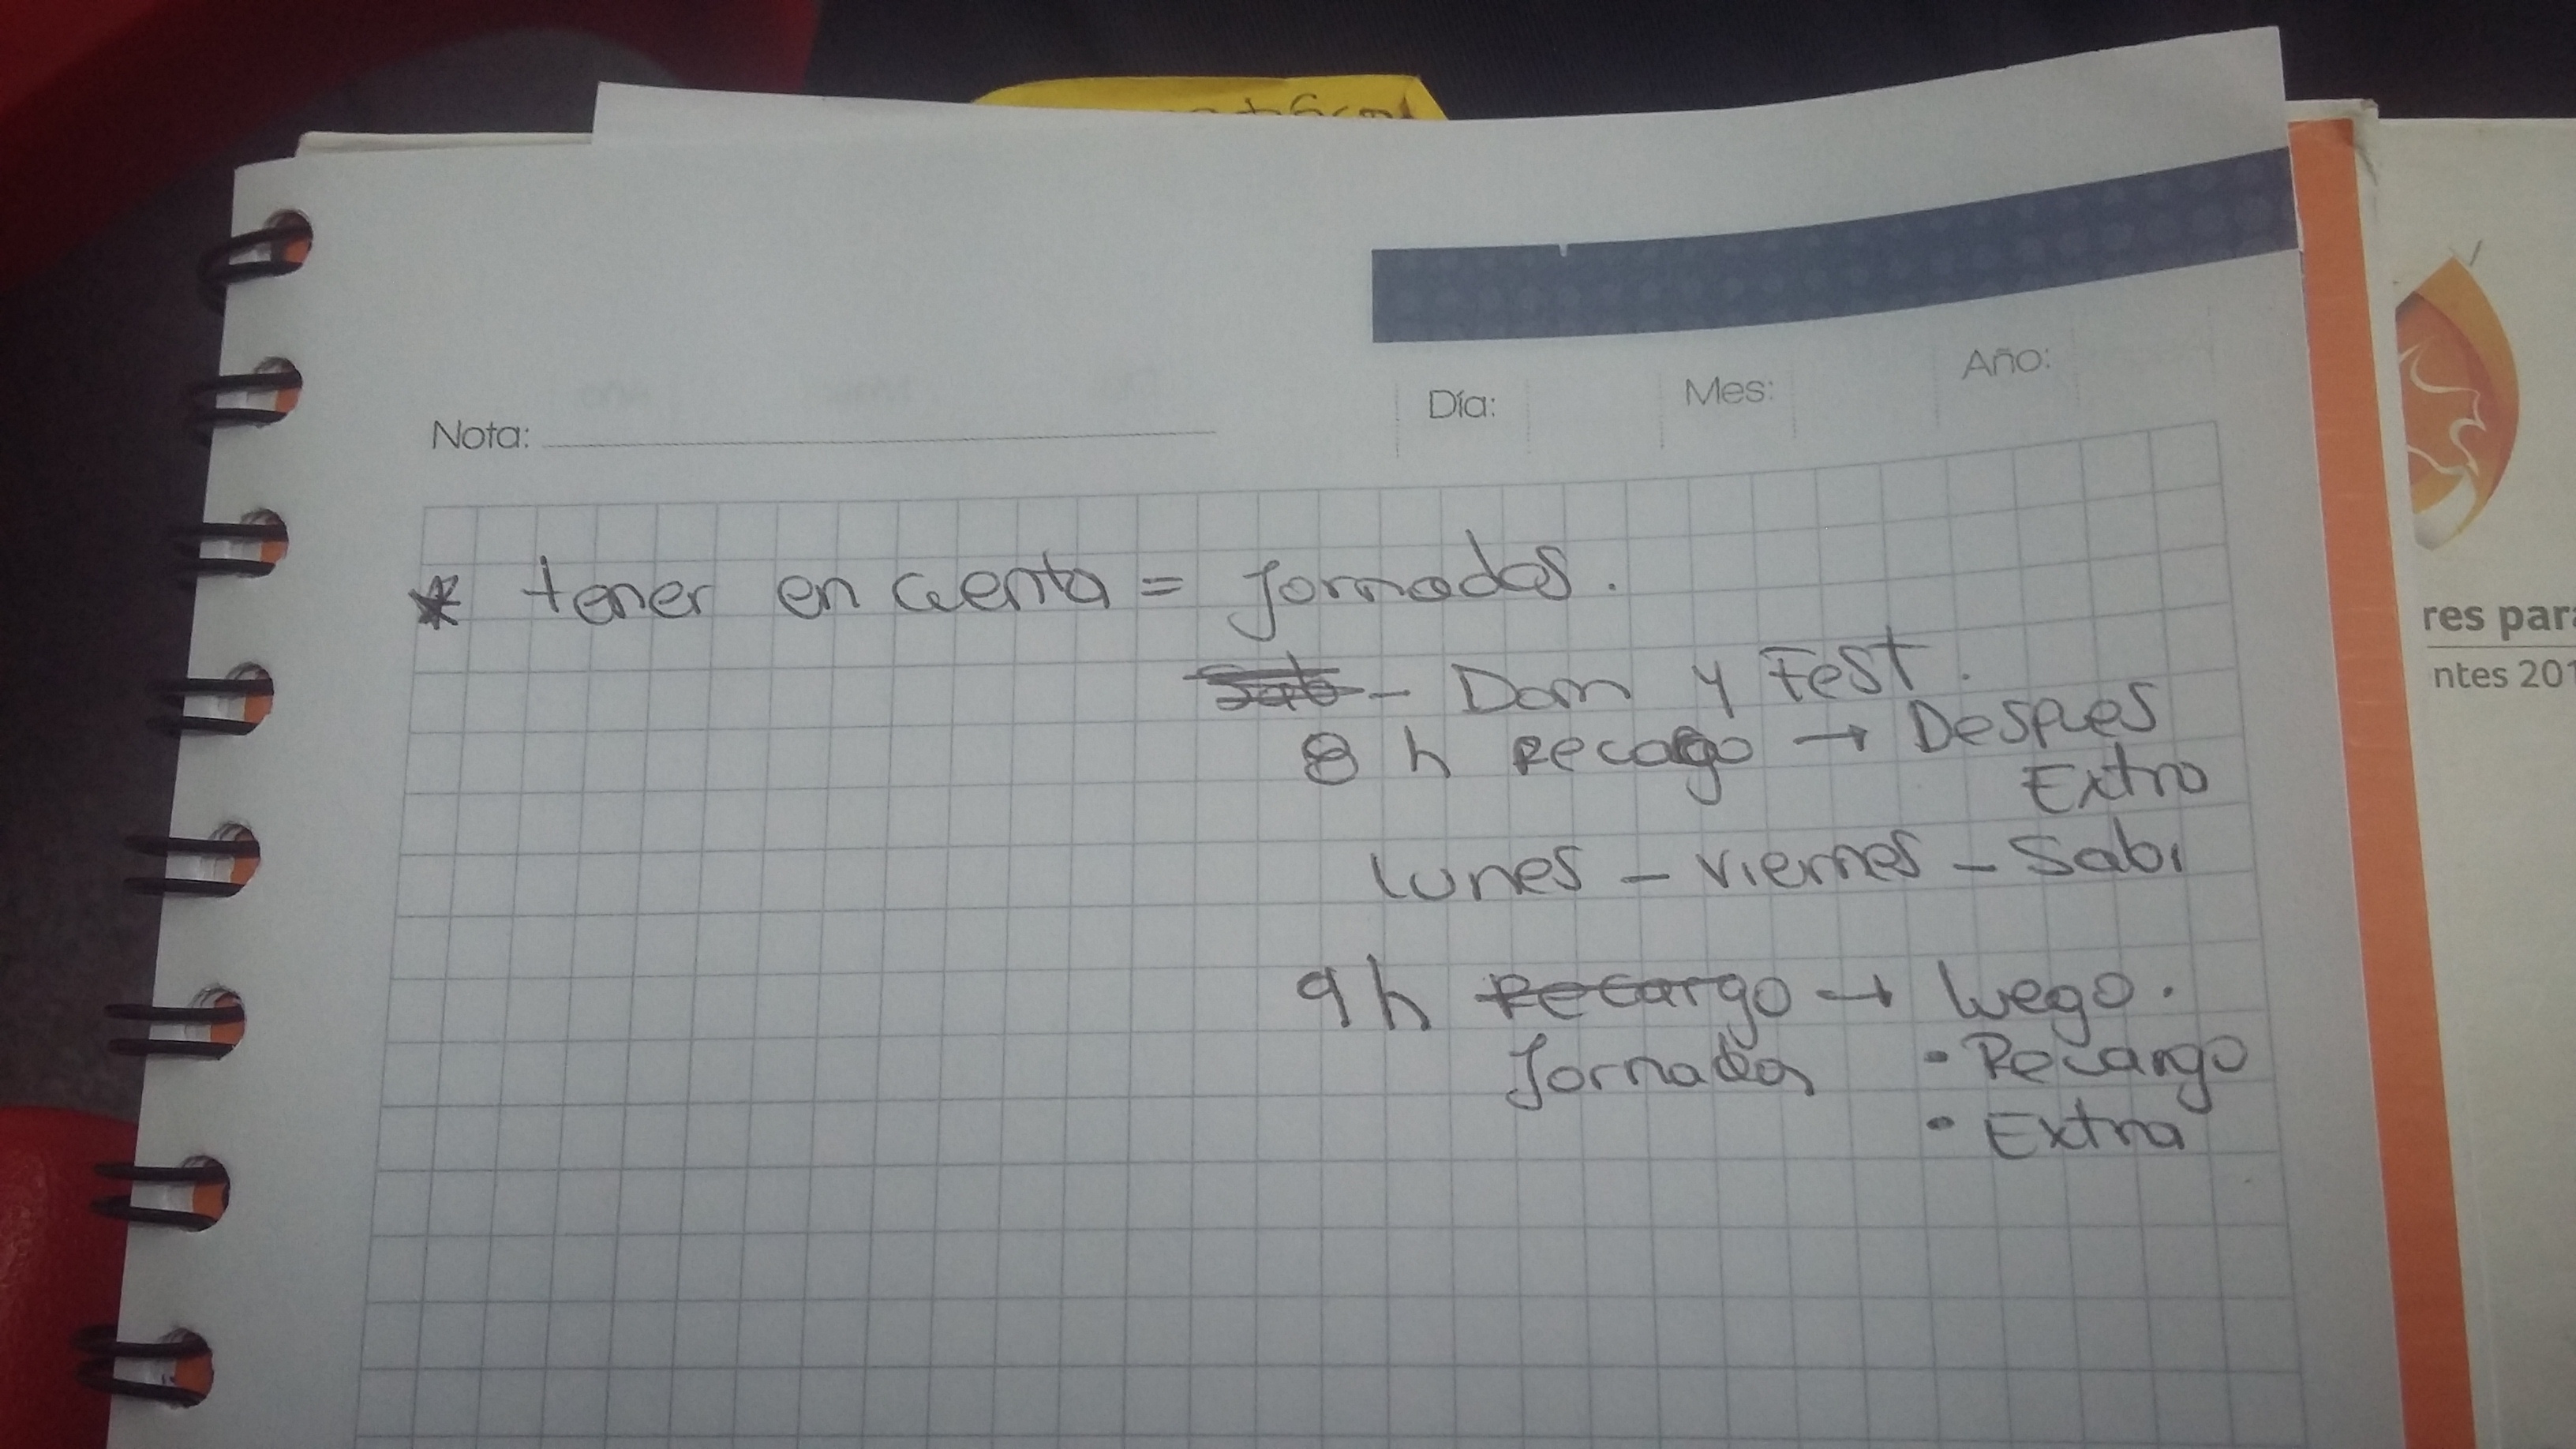 Nota:
Día: Mes: Año:
* tener en cuenta = Jornadas.
Sab - Dom y Fest.
8 h Recargo → Despues
Extra
lunes - viernes - Sab
9 h Recargo → luego.
Jornada • Recargo
• Extra
res para
ntes 201